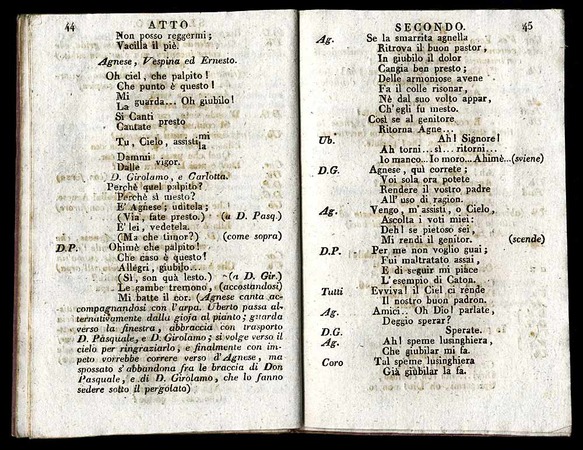 44 ATTO
Non posso reggermi;
Vacilla il piè.
Agnese, Vespina ed Ernesto.
Oh ciel, che palpito!
Che punto è questo!
Mi
La guarda... Oh giubilo!
Si Canti
Cantate presto
Tu, Cielo, assisti mi
la
Dammi
Dalle vigor.
D. Girolamo, e Carlotta.
Perchè quel palpito?
Perchè sì mesto?
E' Agnese; uditela;
(Via, fate presto.) (a D. Pasq.)
E' lei, vedetela.
(Ma che timor?) (come sopra)
D.P. Ohimè che palpito!
Che caso è questo!
Allegri, giubilo...
(Sì, son quà lesto.) (a D. Gir.)
Le gambe tremono, (accostandosi)
Mi batte il cor. (Agnese canta ac-
compagnandosi con l'arpa. Uberto passa al-
ternativamente dalla gioja al pianto; guarda
verso la finestra, abbraccia con trasporto
D. Pasquale, e D. Girolamo; si volge verso il
cielo per ringraziarlo; e finalmente con im-
peto vorrebbe correre verso d'Agnese, ma
spossato s'abbandona fra le braccia di Don
Pasquale, e di D. Girolamo, che lo fanno
sedere sotto il pergolato)
SECONDO. 45
Ag. Se la smarrita agnella
Ritrova il buon pastor,
In giubilo il dolor
Cangia ben presto;
Delle armoniose avene
Fa il colle risonar,
Nè dal suo volto appar,
Ch'egli fu mesto.
Così se al genitore
Ritorna Agne...
Ub. Ah! Signore!
Ah torni... sì... ritorni...
Io manco... Io moro... Ahimè... (sviene)
D.G. Agnese, quì correte;
Voi sola ora potete
Rendere il vostro padre
All' uso di ragion.
Ag. Vengo, m'assisti, o Cielo,
Ascolta i voti miei:
Deh! se pietoso sei,
Mi rendi il genitor. (scende)
D.P. Per me non voglio guai;
Fui maltrattato assai,
E di seguir mi piace
L'esempio di Caton.
Tutti Evviva! il Ciel ci rende
Il nostro buon padron.
Ag. Amici... Oh Dio! parlate,
Deggio sperar?
D.G. Sperate.
Ag. Ah! speme lusinghiera,
Che giubilar mi fa.
Coro Tal speme lusinghiera
Già giubilar la fa.